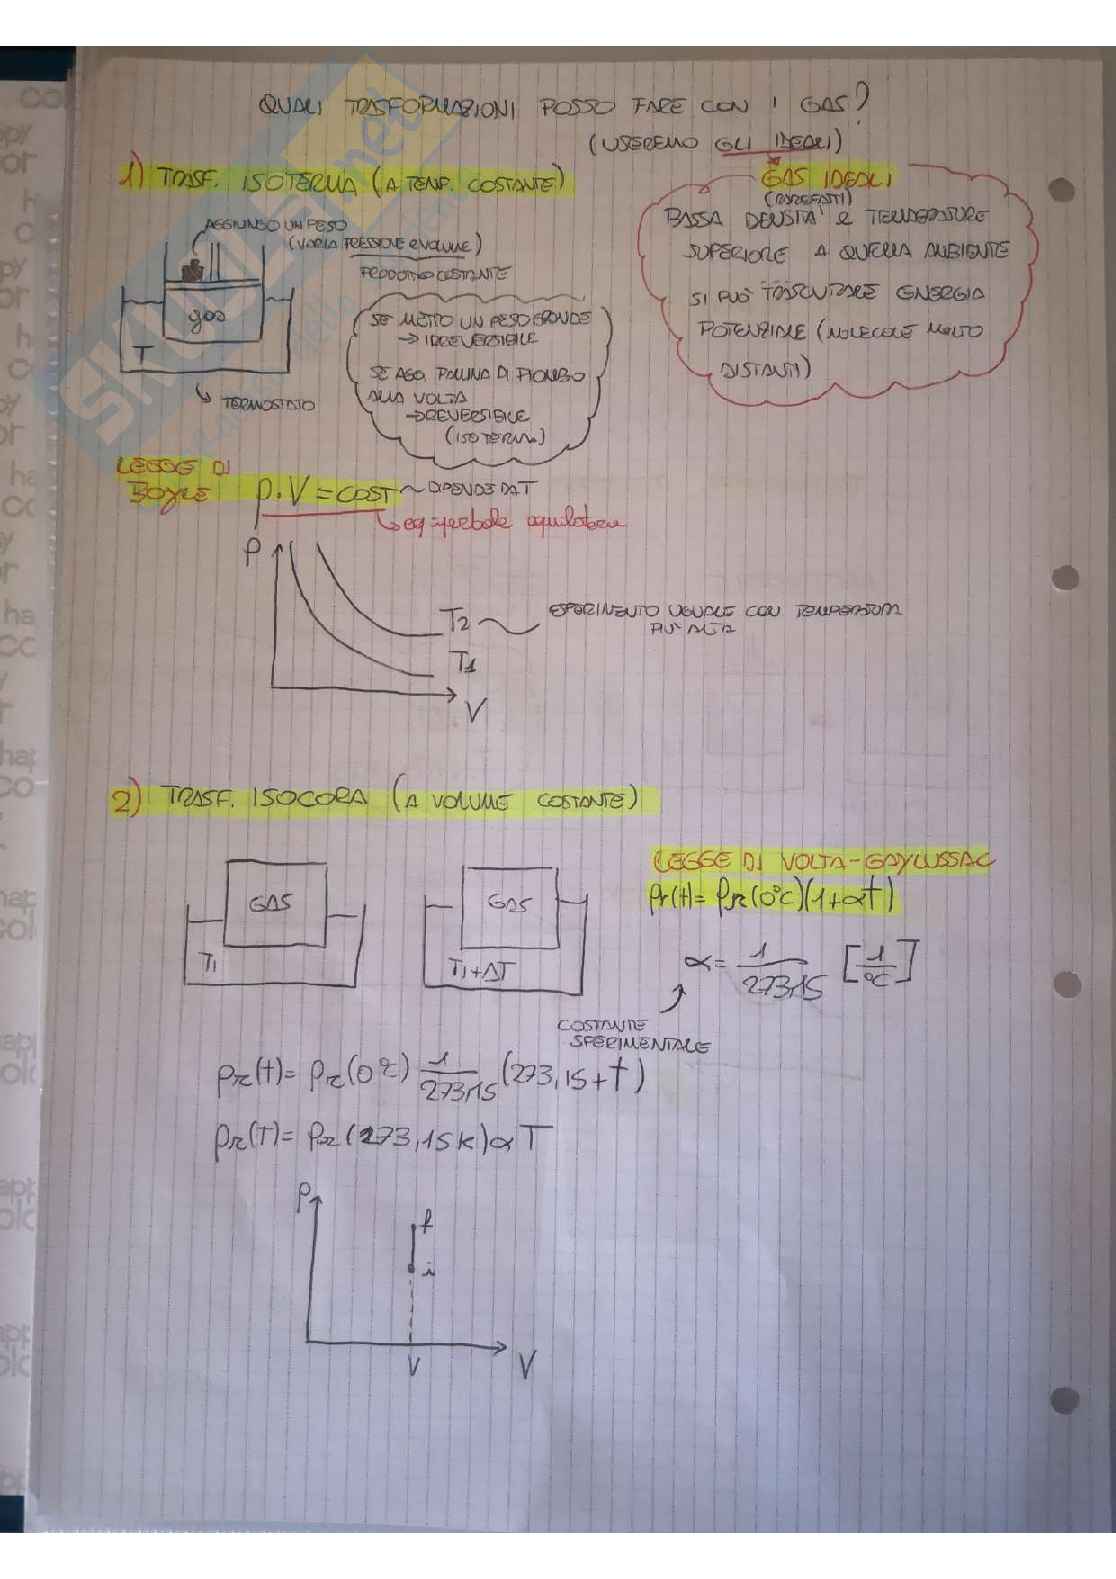 QUALI TRASFORMAZIONI POSSO FARE CON I GAS?
(USEREMO GLI IDEALI)
1) TRASF. ISOTERMA (A TEMP. COSTANTE)
AGGIUNGO UN PESO
(VARIA PRESSIONE E VOLUME)
PRODOTTO COSTANTE
gas
T
TERMOSTATO
SE METTO UN PESO GRANDE
→ IRREVERSIBILE
SE AGG. PALLINA DI PIOMBO
ALLA VOLTA
→ REVERSIBILE
(ISOTERMA)
GAS IDEALI
(RAREFATTI)
BASSA DENSITÀ E TEMPERATURE
SUPERIORE A QUELLA AMBIENTE
SI PUÒ TRASCURARE ENERGIA
POTENZIALE (MOLECOLE MOLTO
DISTANTI)
LEGGE DI
BOYLE p·V = COST ~ DIPENDE DA T
eq. iperbole equilatera
P
T2
ESPERIMENTO UGUALE CON TEMPERATURA
PIÙ ALTA
T1
V
2) TRASF. ISOCORA (A VOLUME COSTANTE)
GAS
T1
GAS
T1+ΔT
LEGGE DI VOLTA-GAYLUSSAC
Pr(t)= Pr(0°C)(1+αt)
α= 1/273,15 [1/°C]
COSTANTE
SPERIMENTALE
Pr(t)= Pr(0°C) 1/273,15 (273,15+t)
Pr(T)= Pr(273,15K)αT
P
f
i
V
V
SKUOLA.net